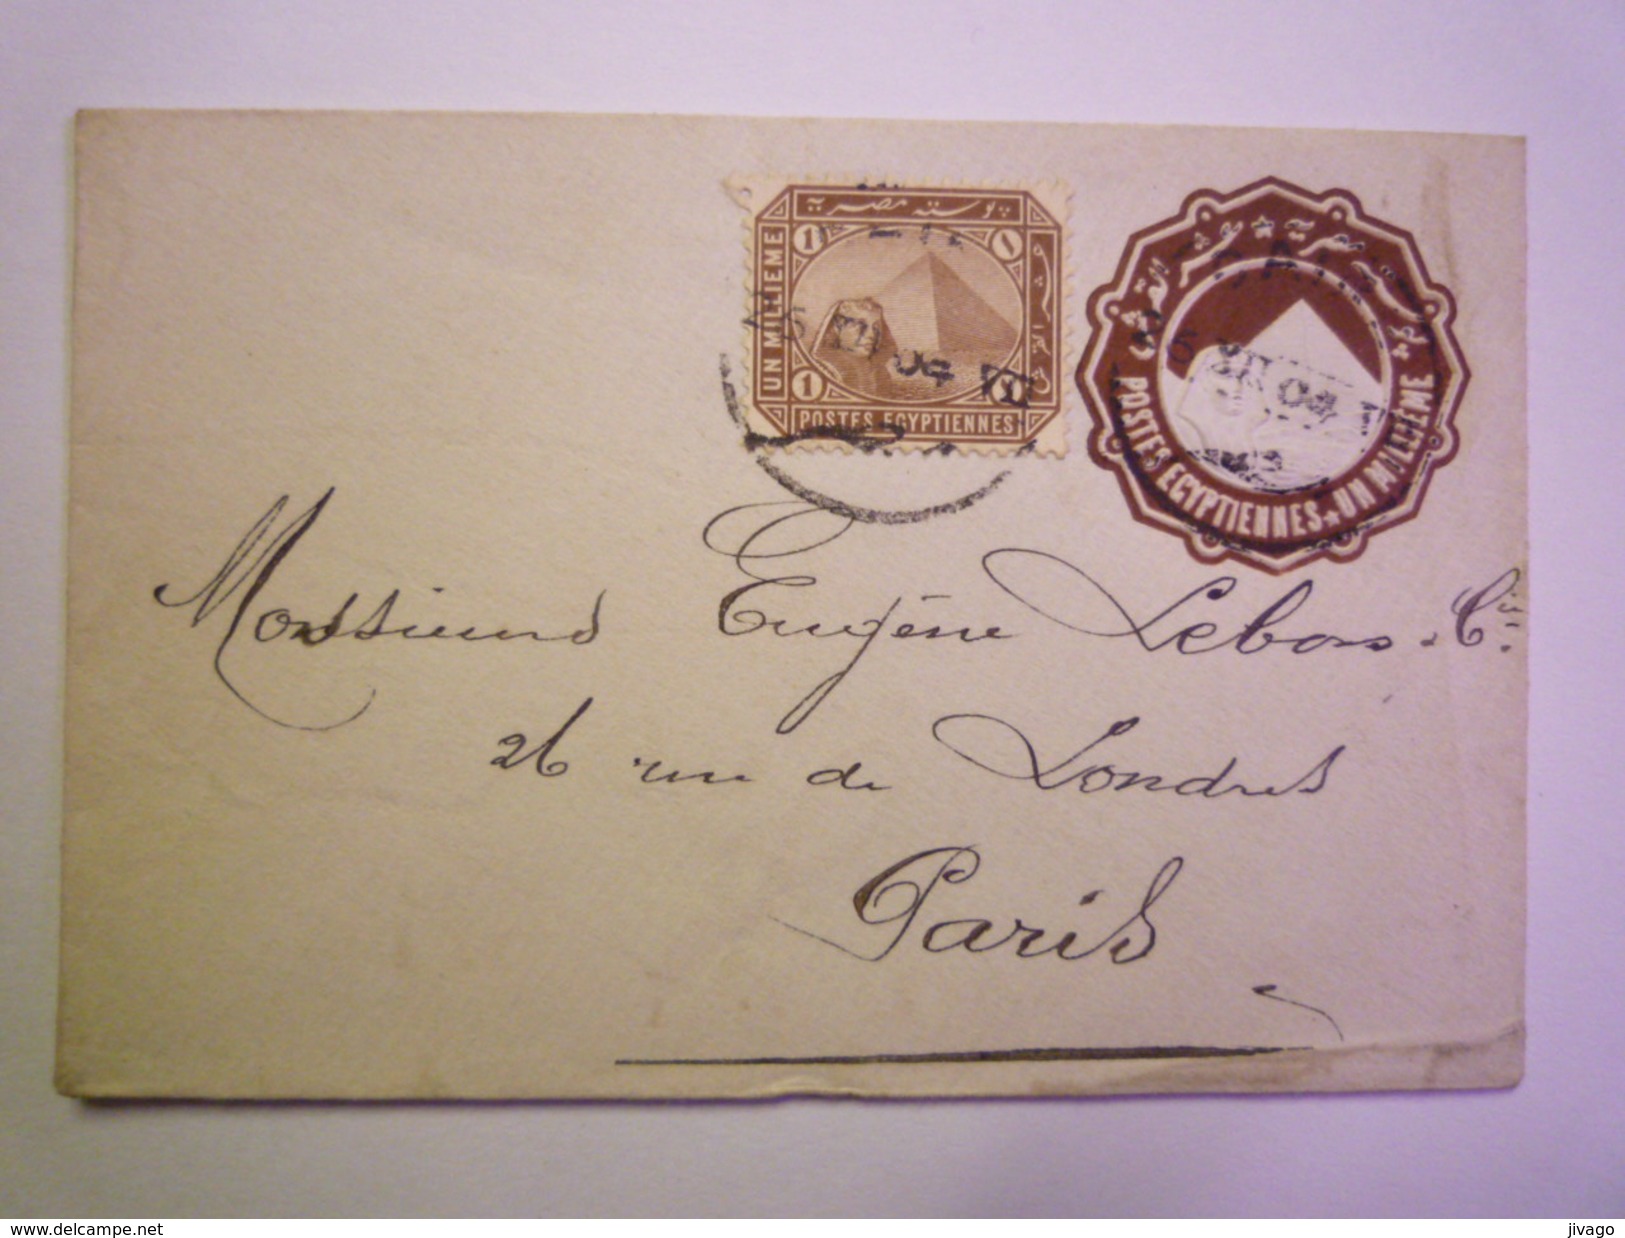 پوسته مصريه
1
١
UN MILLIEME
1
١
POSTES EGYPTIENNES
POSTES EGYPTIENNES ★ UN MILLIEME
CAI
XII 04
Monsieur
Eugène Lebon & Cie
26 rue de Londres
Paris
www.delcampe.net
jivago